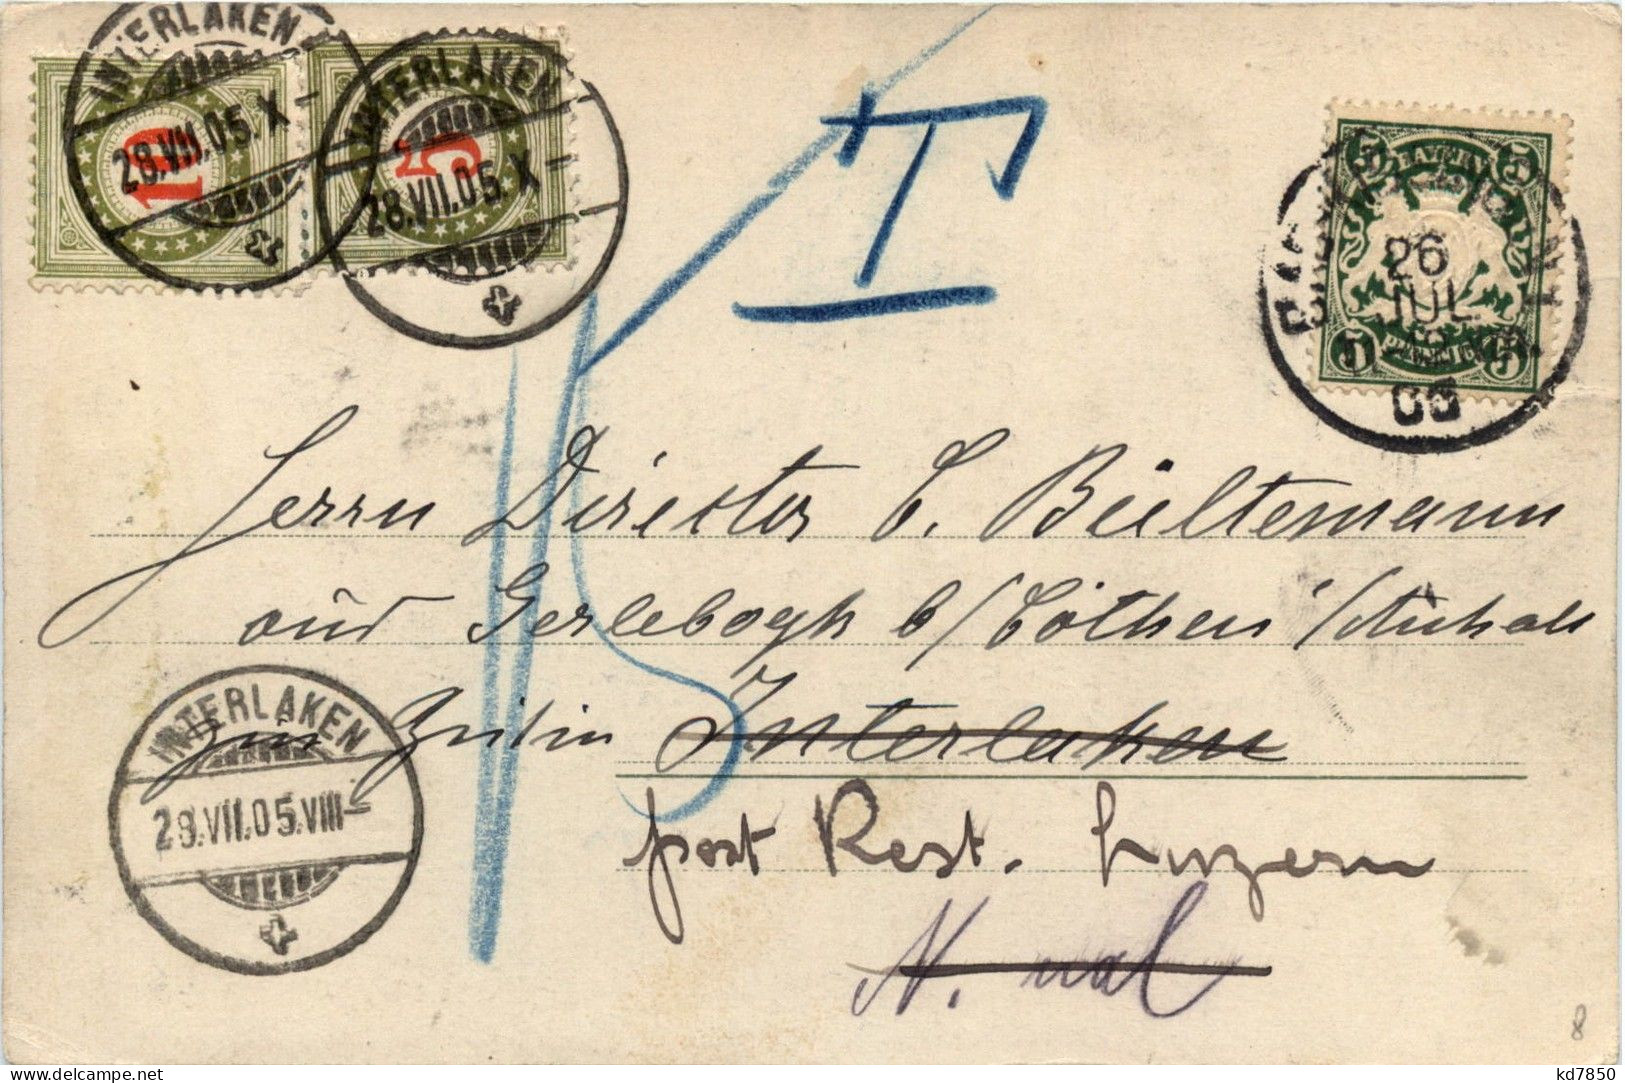 INTERLAKEN
28.VII.05.X-
10
INTERLAKEN
28.VII.05.X-
5
T
15
BAYERN
5 5
26
JUL
05
5 5
Herrn Director C. Bieltemann
aus Gerlebogk b/Cöthen /Anhalt
zur Zeit in Interlaken
post Rest. Luzern
INTERLAKEN
29.VII.05.VIII-
8
kd7850